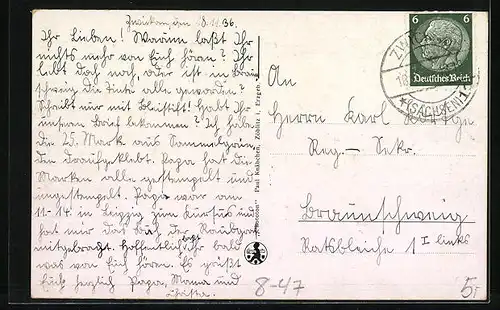 Zwickau, den 18.11.36.
Ihr Lieben! Warum laßt Ihr
nichts mehr von Euch hören? Ihr
lebt doch noch, oder ist in Braun-
schweig die Tinte alle geworden?
Schreibt nur mit Bleistift! Habt Ihr
unseren Brief bekommen? Ich habe
die 25. Mark aus Sammelgrün-
den draufgeklebt. Papa hat die
Marken alle gestempelt und
eingestempelt. Papa war am
11-14. in Leipzig zum Kursus und
hat mir das Buch der
mitgebracht. Hoffentlich bald
was von Euch hören. Es grüßt
Euch herzlich Papa, Mama und
Christa.
Paul Knäbchen, Zöblitz i. Erzgeb.
6 6
Deutsches Reich
ZWICKAU
(SACHSEN) 1
An
Herrn Karl
Reg.- Sekr.
Braunschweig
Ratsbleiche 1 I links
8-47
5,-